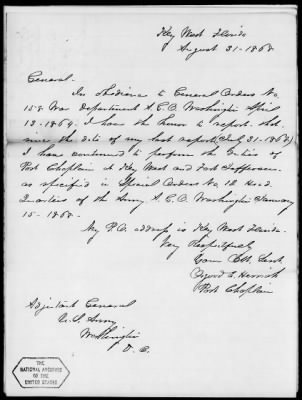 Key West Florida
August 31-1868
General.
In obedience to General Orders No.
158 War Department A.G.O. Washington April
13-1864. I have the honor to report that
since the date of my last report (July 31-1868)
I have continued to perform the duties of
Post Chaplain at Key West and Fort Jefferson
as specified in Special Orders No. 12 Head
Quarters of the Army A.G.O. Washington January
15-1868.
My P.O. address is Key West Florida.
Very Respectfully
Your Obt. Servt.
Herrick
Post Chaplain
Adjutant General
U.S. Army
Washington
D.C.
THE
NATIONAL ARCHIVES
OF THE
UNITED STATES